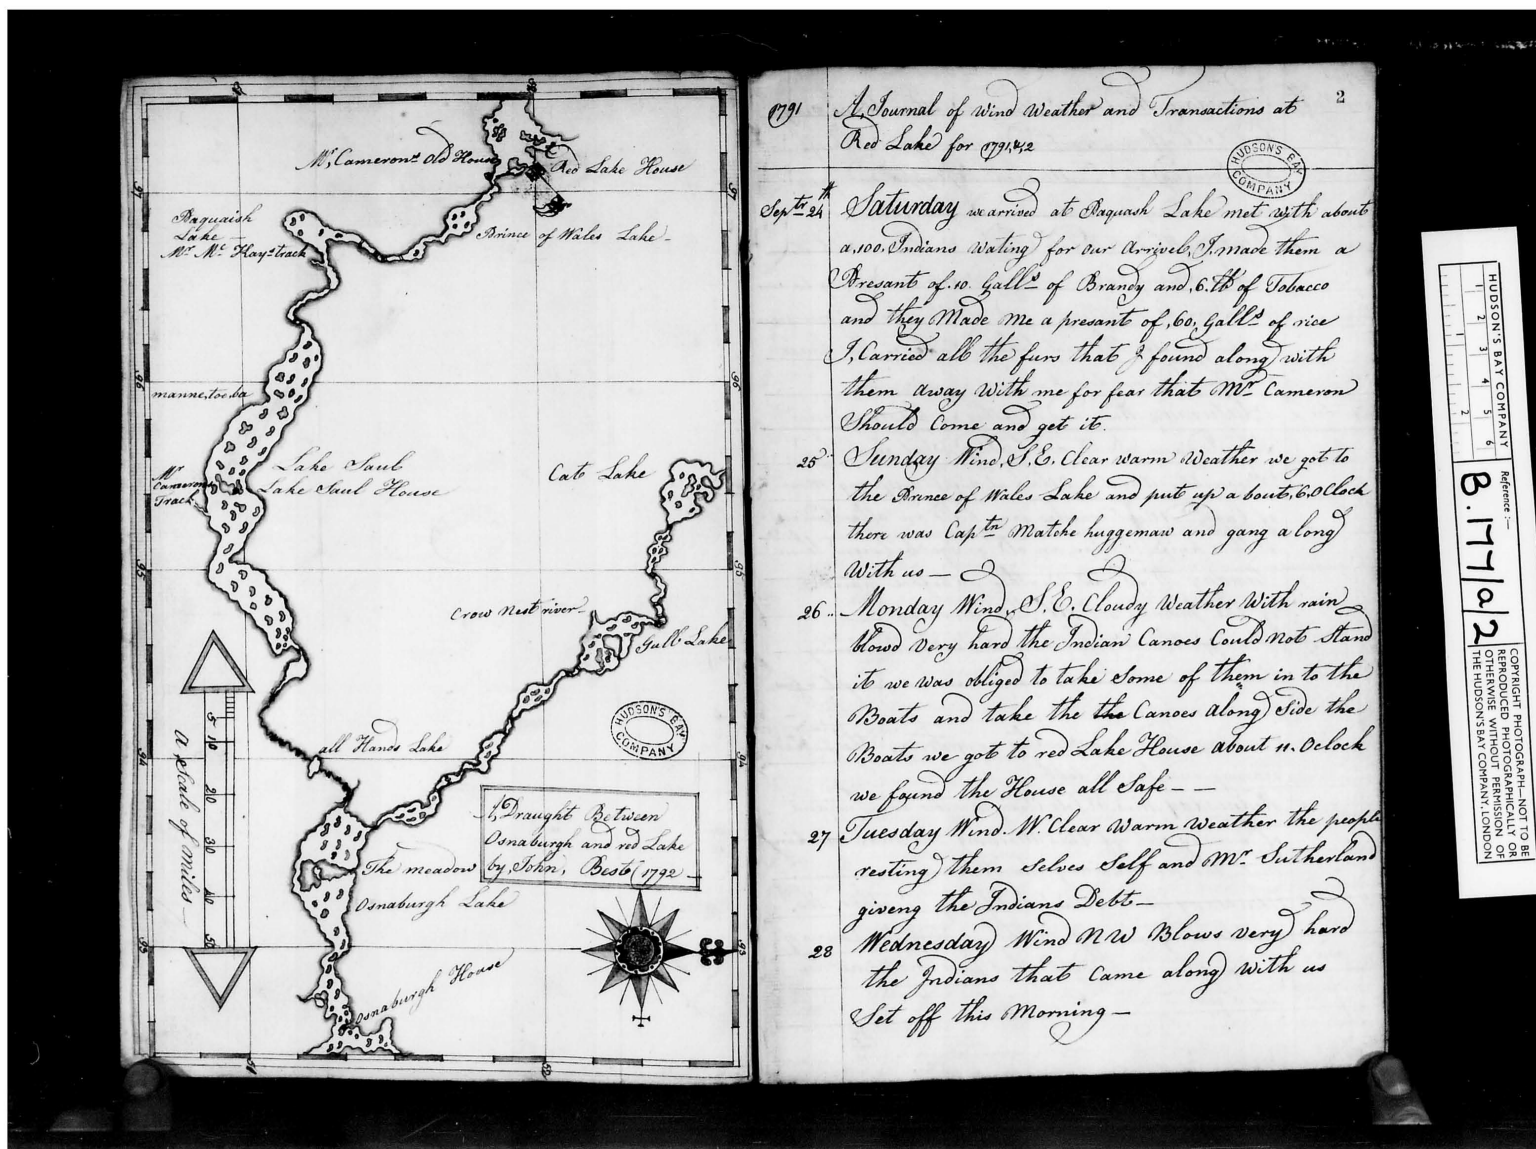 Mr. Camerons Old House
Red Lake House
Paquaish
Lake
Mr. Mc. Kays track
Prince of Wales Lake
mannetooba
Lake Saul
Lake Saul House
Mr
Camerons
Track
Cat Lake
Crow Nest river
Gull Lake
all Hands Lake
A, Draught Between
Osnaburgh and red Lake
by, John, Best 1792
The meadow
Osnaburgh Lake
Osnaburgh House
a Scale of Miles
5 10 20 30 40 50
97
96
95
94
93
97
96
95
94
93
51
52
HUDSON'S BAY
COMPANY
2
1791
A, Journal of Wind Weather and Transactions at
Red Lake for 1791,&,2
HUDSON'S BAY
COMPANY
Septr 24th Saturday we arrived at Paquash Lake met with about
a,100, Indians Wating for our Arrivel, I, made them a
Presant of .10. Galls of Brandy and, 6. lb of Tobacco
and they Made me a presant of, 60, Galls of rice
I, Carried all the furs that I found along with
them away With me for fear that Mr Cameron
Should Come and get it.
25 Sunday Wind, S.E, Clear warm Weather we got to
the Prince of Wales Lake and put up a bout, 6, O Clock
there was Captn Matche huggemaw and gang a long
With us —
26 Monday Wind, S.E. Cloudy Weather With rain
blowd very hard the Indian Canoes Could Not Stand
it we was obliged to take Some of them in to the
Boats and take the the Canoes along Side the
Boats we got to red Lake House about 11. Oclock
we found the House all Safe — —
27 Tuesday Wind. W. Clear Warm weather the people
resting them selves Self and Mr. Sutherland
giveng the Indians Debt —
28 Wednesday Wind NW Blows very hard
the Indians that Came along With us
Set off this Morning —
HUDSON'S BAY COMPANY
1 2 3 4 5 6
1 2
Reference :—
B.177/a/2
COPYRIGHT PHOTOGRAPH—NOT TO BE
REPRODUCED PHOTOGRAPHICALLY OR
OTHERWISE WITHOUT PERMISSION OF
THE HUDSON'S BAY COMPANY, LONDON